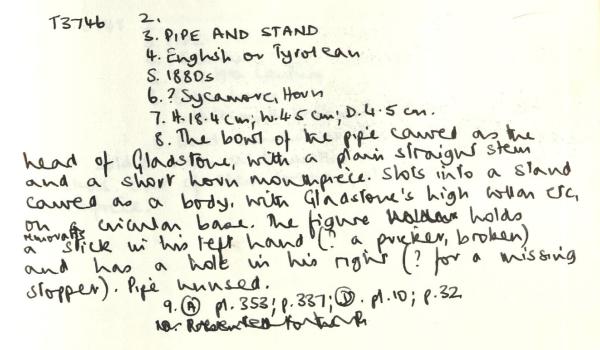 T3746 2.
3. PIPE AND STAND
4. English or Tyrolean
5. 1880s
6. ? Sycamore, Horn
7. H.18.4cm; W.4.5cm; D.4.5cm.
8. The bowl of the pipe carved as the
head of Gladstone, with a plain straight stem
and a short horn mouthpiece. Slots into a stand
carved as a body, with Gladstone's high collar etc,
on a circular base. The figure holds
removable
a stick in his left hand (? a pricker, broken)
and has a hole in his right (? for a missing
stopper). Pipe unused.
9. (A) pl.353; p.337; (D). pl.10; p.32